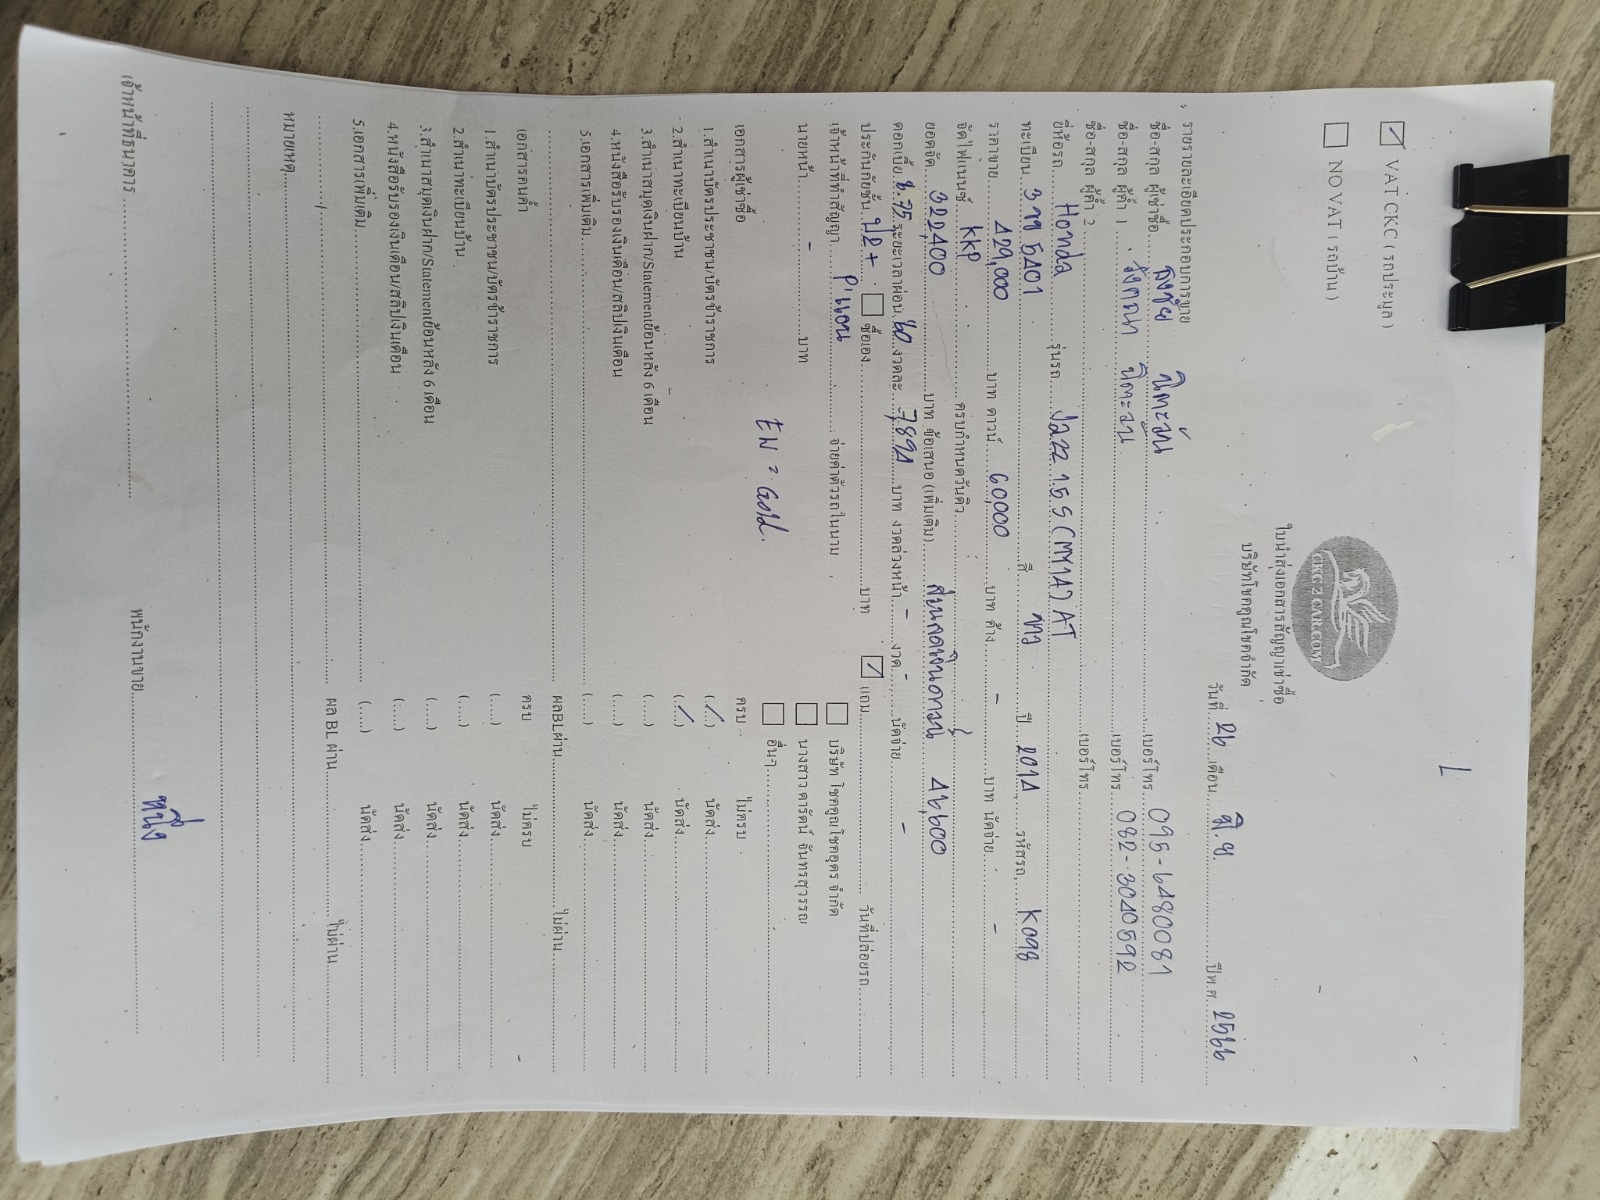 1
VAT CKC ( รถประมูล )
NO VAT ( รถบ้าน )
CKC 2 CAR.COM
ใบนำส่งเอกสารสัญญาเช่าซื้อ
บริษัทโชคคูณโชคจำกัด
วันที่ 26 เดือน มิ.ย. ปีพ.ศ 2566
รายละเอียดประกอบการขาย
ชื่อ-สกุล ผู้เช่าซื้อ เบอร์โทร 095-6480081
ชื่อ-สกุล ผู้ค้ำ 1 เบอร์โทร 082-3040592
ชื่อ-สกุล ผู้ค้ำ 2 เบอร์โทร
ยี่ห้อรถ Honda รุ่นรถ Jazz 1.5 S (MY14) AT
ทะเบียน 5401 สี ขาว ปี 2014 รหัสรถ K098
ราคาขาย 429,000 บาท ดาวน์ 60,000 บาท ค้าง - บาท นัดจ่าย -
จัดไฟแนนซ์ KKP ครบกำหนดวันคิว
ยอดจัด 322,400 บาท ข้อเสนอ (เพิ่มเติม) ส่วนลดเงินดาวน์ 46,600
ดอกเบี้ย 8.75 ระยะเวลาผ่อน 60 งวดละ 7,894 บาท งวดล่วงหน้า - งวด - นัดจ่าย -
ประกันภัยชั้น ป2+ ซื้อเอง บาท แถม วันที่ปล่อยรถ
เจ้าหน้าที่ทำสัญญา P'แตน จ่ายค่าตัวรถในนาม บริษัท โชคคูณโชคอุดร จำกัด
นายหน้า - บาท นางสาว ดารัตน์ จันทรสุวรรณ
EW = Gold. อื่นๆ
เอกสารผู้เช่าซื้อ ครบ ไม่ครบ
1.สำเนาบัตรประชาชน/บัตรข้าราชการ (./.) นัดส่ง
2.สำเนาทะเบียนบ้าน (./.) นัดส่ง
3.สำเนาสมุดเงินฝาก/Statementย้อนหลัง 6 เดือน (....) นัดส่ง
4.หนังสือรับรองเงินเดือน/สลิปเงินเดือน (....) นัดส่ง
5.เอกสารเพิ่มเติม (....) นัดส่ง
ผลBLผ่าน ไม่ผ่าน
เอกสารคนค้ำ ครบ ไม่ครบ
1.สำเนาบัตรประชาชน/บัตรข้าราชการ (....) นัดส่ง
2.สำเนาทะเบียนบ้าน (....) นัดส่ง
3.สำเนาสมุดเงินฝาก/Statementย้อนหลัง 6 เดือน (....) นัดส่ง
4.หนังสือรับรองเงินเดือน/สลิปเงินเดือน (....) นัดส่ง
5.เอกสารเพิ่มเติม (....) นัดส่ง
ผล BL ผ่าน ไม่ผ่าน
หมายเหตุ
เจ้าหน้าที่ธนาคาร พนักงานขาย หนึ่ง